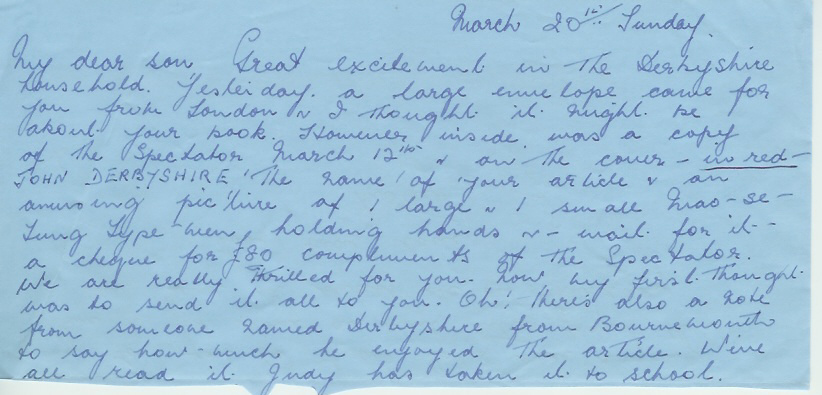 March 20th Sunday.
My dear son Great excitement in the Derbyshire
household. Yesterday. a large envelope came for
you from London & I thought it might be
about your book. However inside was a copy
of the Spectator March 12th & on the cover - in red -
JOHN DERBYSHIRE 'The name' of your article & an
amusing picture of 1 large & 1 small Mao-se-
tung type men, holding hands & - wait for it -
a cheque for £80 compliments of the Spectator.
We are really thrilled for you. Now my first thought
was to send it all to you. Oh! there's also a note
from someone named Derbyshire from Bournemouth
to say how much he enjoyed the article. We've
all read it. Judy has taken it to school.